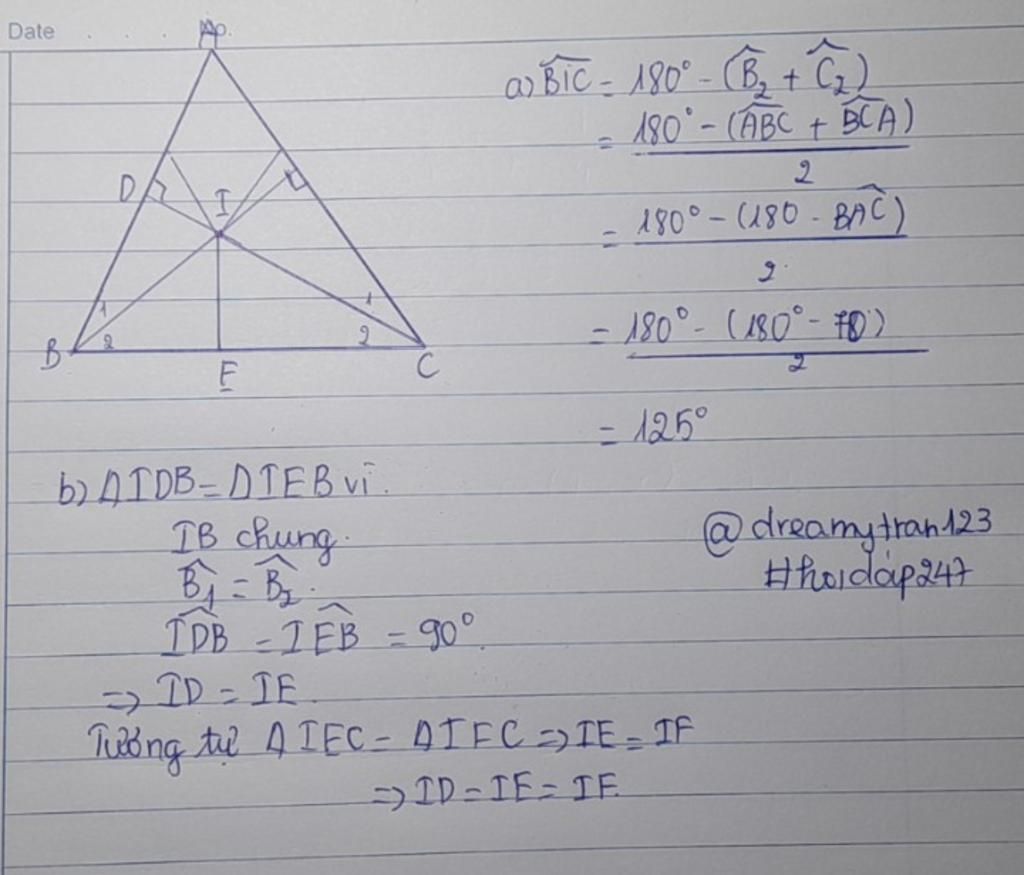 Date
A
D
I
1
1
B
2
2
C
E
a) B̂IC = 180° - (B̂₂ + Ĉ₂)
= 180° - (ÂBC + B̂CA)
2
= 180° - (180 - BAĈ)
2
= 180° - (180° - 70)
2
= 125°
b) ΔIDB = ΔIEB vì
IB chung.
B̂₁ = B̂₂.
ÎDB = IÊB = 90°.
=> ID = IE.
Tương tự ΔIEC = ΔIFC => IE = IF
=> ID = IE = IF.
@dreamytran123
#hoidáp247